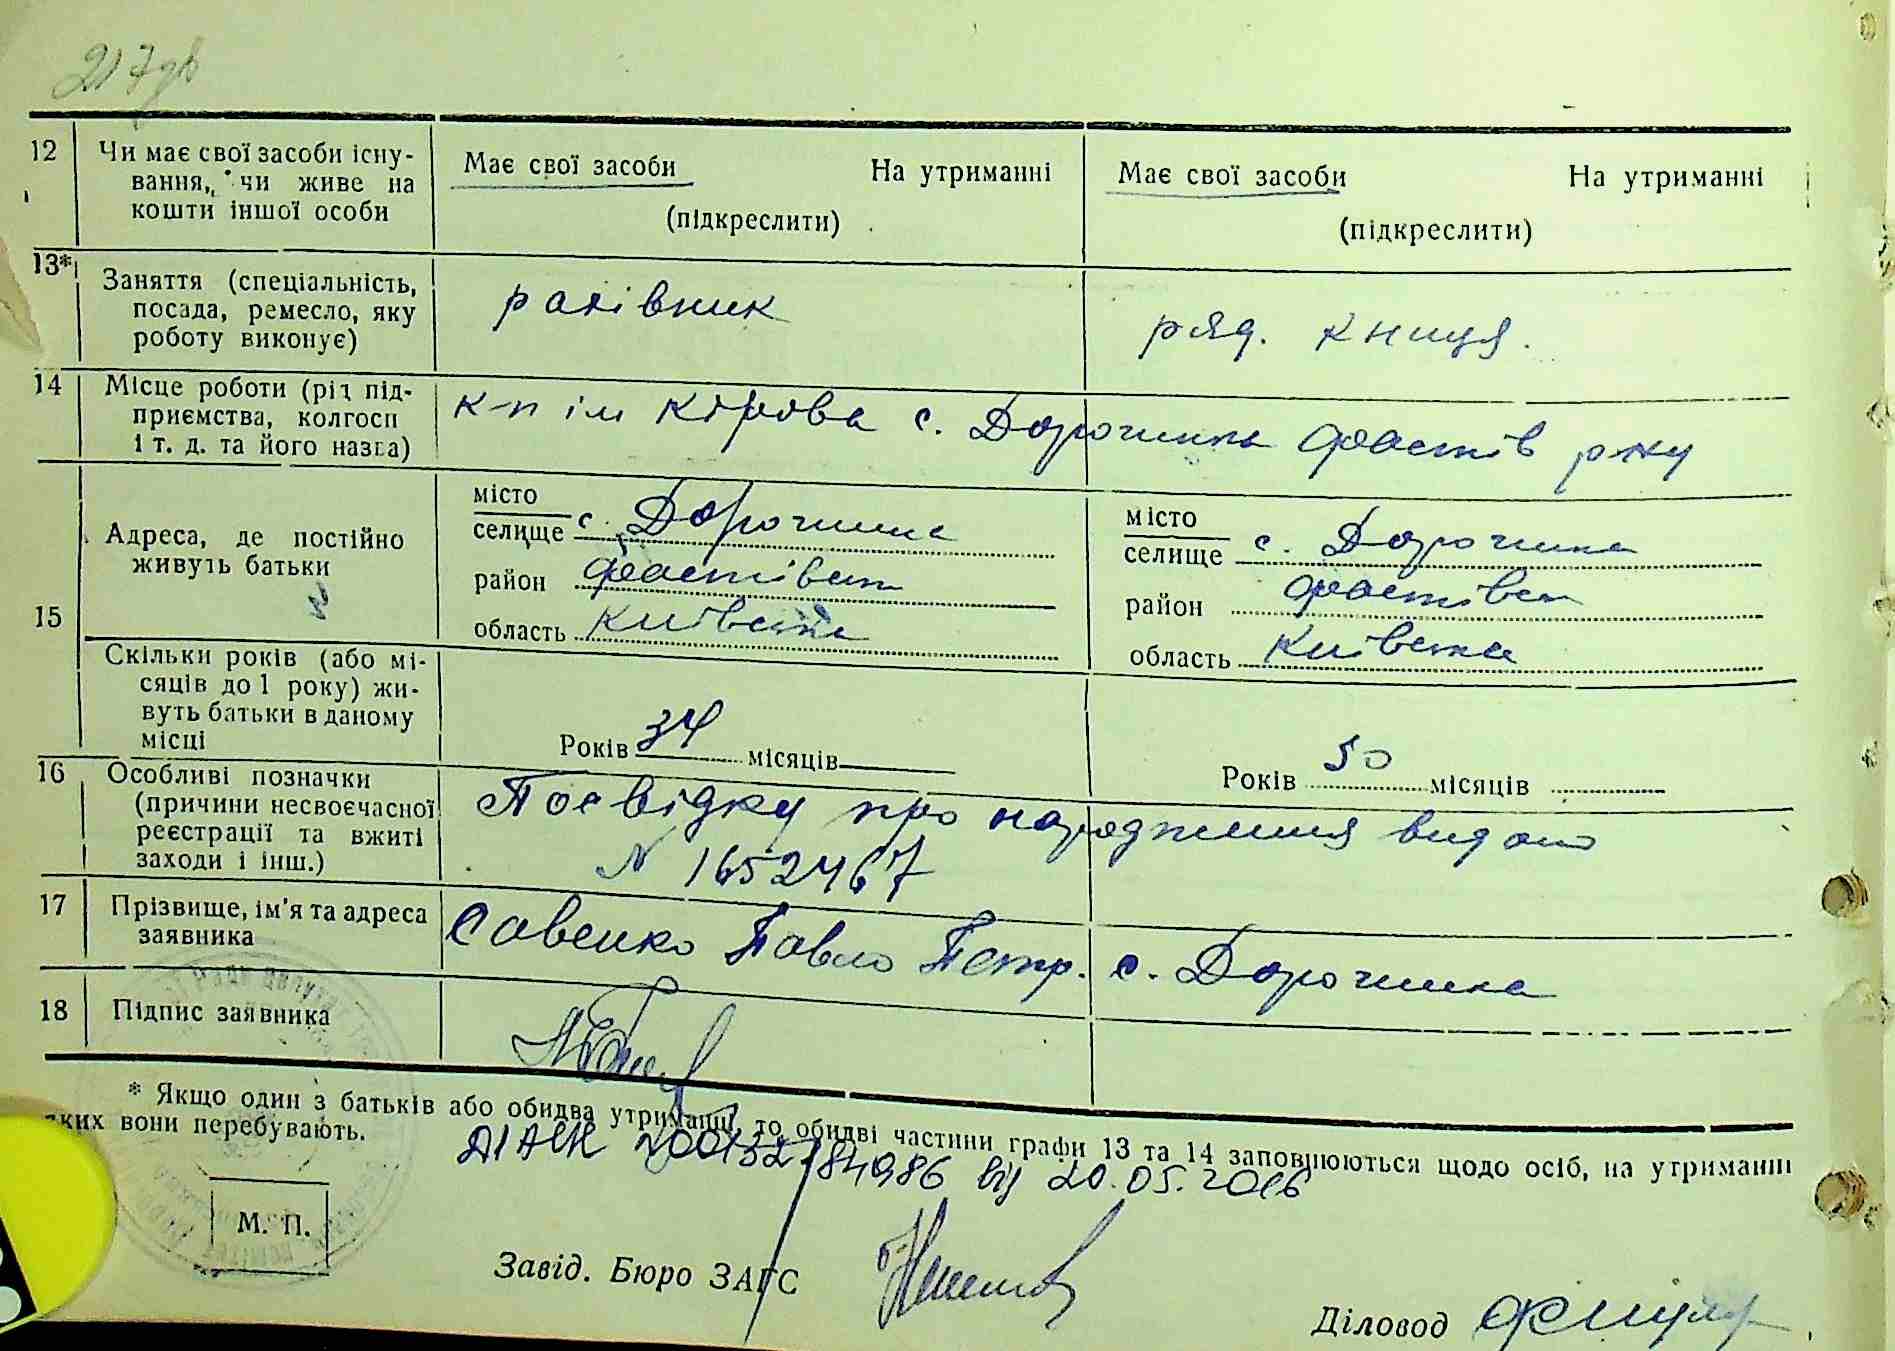 217зв
12 Чи має свої засоби існу-
вання, чи живе на
кошти іншої особи
Має свої засоби На утриманні
(підкреслити)
Має свої засоби На утриманні
(підкреслити)
13* Заняття (спеціальність,
посада, ремесло, яку
роботу виконує)
рахівник
ряд. к-ниця.
14 Місце роботи (рід під-
приємства, колгосп
і т. д. та його назва)
к-п ім Кірова с. Дорогинка Фастів р-ну
15 Адреса, де постійно
живуть батьки
місто
селище с. Дорогинка
район Фастівськ
область Київська
місто
селище с. Дорогинка
район Фастівськ
область Київська
Скільки років (або мі-
сяців до 1 року) жи-
вуть батьки в даному
місці
Років 34 місяців
Років 30 місяців
16 Особливі позначки
(причини несвоєчасної
реєстрації та вжиті
заходи і інш.)
Посвідку про народження видано
N 1652467
17 Прізвище, ім'я та адреса
заявника
Савенко Павло Петр. с. Дорогинка
18 Підпис заявника
* Якщо один з батьків або обидва утриманці, то обидві частини графи 13 та 14 заповнюються щодо осіб, на утриманні
яких вони перебувають.
від 20.05.2016
М. П.
Завід. Бюро ЗАГС
Діловод